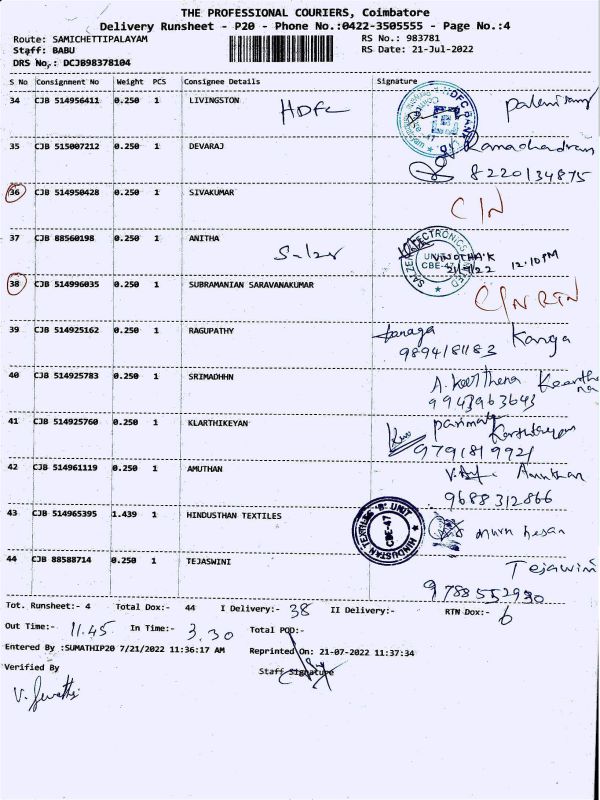 THE PROFESSIONAL COURIERS, Coimbatore
Delivery Runsheet - P20 - Phone No.:0422-3505555 - Page No.:4
Route: SAMICHETTIPALAYAM RS No.: 983781
Staff: BABU RS Date: 21-Jul-2022
DRS No,: DCJB98378104
S No Consignment No Weight PCS Consignee Details Signature
34 CJB 514956411 0.250 1 LIVINGSTON HDFC
35 CJB 515007212 0.250 1 DEVARAJ Ramachandran
8220134875
36 CJB 514950428 0.250 1 SIVAKUMAR C/N
37 CJB 88560198 0.250 1 ANITHA Salzer SALZER ELECTRONICS LIMITED UNIT CBE-47 VINOTHA.K 21/7/22 12.10PM
38 CJB 514996035 0.250 1 SUBRAMANIAN SARAVANAKUMAR C/N RTN
39 CJB 514925162 0.250 1 RAGUPATHY Kanaga Kanga
9894181183
40 CJB 514925783 0.250 1 SRIMADHHN A. Keerthena Keerthena
9943963643
41 CJB 514925760 0.250 1 KLARTHIKEYAN
9791819921
42 CJB 514961119 0.250 1 AMUTHAN Amuthan
9688312866
43 CJB 514965395 1.439 1 HINDUSTHAN TEXTILES HINDUSTAN TEXTILES 'B' UNIT CBE-47
44 CJB 88588714 0.250 1 TEJASWINI Tejawini
9788552930
Tot. Runsheet:- 4 Total Dox:- 44 I Delivery:- 38 II Delivery:- RTN Dox:- 6
Out Time:- 11.45 In Time:- 3.30 Total POD:-
Entered By :SUMATHIP20 7/21/2022 11:36:17 AM Reprinted On: 21-07-2022 11:37:34
Verified By Staff Signature